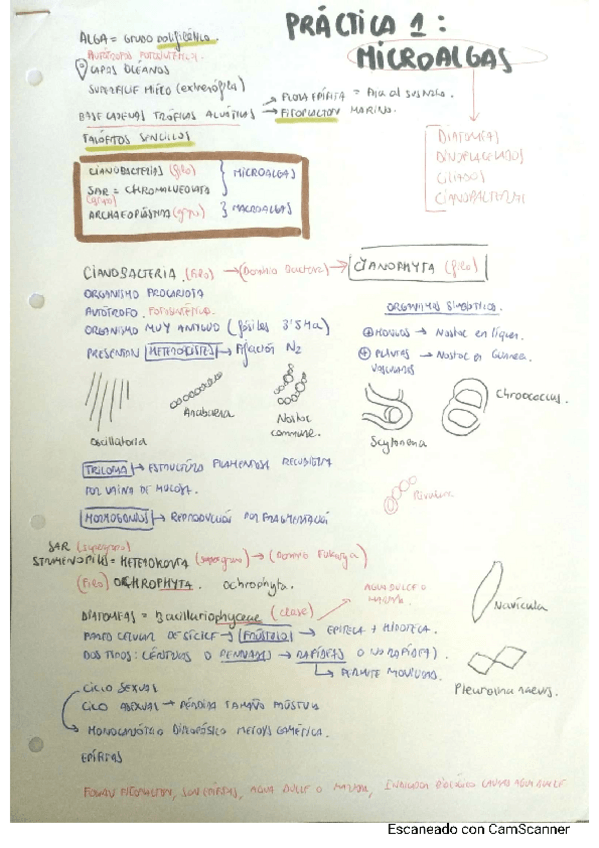 PRÁCTICA 1:
MICROALGAS
ALGA = GRUPO POLIFILÉTICO
AUTÓTROFOS FOTOSINTÉTICA.
LAGOS OCEANOS
SUPERFICIE (extremófila)
BASE CADENAS TRÓFICAS ACUÁTICAS → FLORA EPÍFITA =
→ FITOPLANCTON MARINO.
TALÓFITOS SENCILLOS
DIATOMEAS
DINOFLAGELADOS
CILIADOS
CIANOBACTERIAS
CIANOBACTERIAS (filo)
SAR = CHROMALVEOLATA
(grupo)
} MICROALGAS
ARCHAEOPLASTIDA (grupo) } MACROALGAS
CIANOBACTERIA (Filo) → (Dominio Bacteria) → CIANOPHYTA (filo)
ORGANISMO PROCARIOTA
AUTÓTROFO FOTOSINTÉTICO.
ORGANISMO MUY ANTIGUO (fósiles 3'5Ma)
PRESENTAN HETEROCISTES → Fijación N2
ORGANISMOS SIMBIÓTICOS.
⊕ HONGOS → Nostoc en líquen.
⊕ PLANTAS → Nostoc en Gunnera.
VASCULARES
Oscillatoria
Anabaena
Nostoc
commune.
Scytonema
Chroococcus.
Rivularia
TRICOMA → ESTRUCTURA FILAMENTOSA RECUBIERTA
POR VAINA DE MUCOSA.
HORMOGONIOS → REPRODUCCIÓN POR FRAGMENTACIÓN
SAR (supergrupo)
STRAMENOPILES = HETEROKONTA (supergrupo) → (Dominio Eukarya)
(Filo) OCHROPHYTA. Ochrophyta.
DIATOMEAS = Bacillariophyceae (clase)
AGUA DULCE O
MARINA.
PARED CELULAR DE SÍLICE → FRÚSTULO → EPITECA + HIPOTECA.
DOS TIPOS: CÉNTRICAS O PENNADAS → RAFÍDEAS O NO RAFÍDEAS)
→ PERMITE MOVILIDAD.
Navícula
CICLO SEXUAL
CICLO ASEXUAL → PÉRDIDA TAMAÑO FRÚSTULA
MONOGENÉTICO DIPLOFÁSICO MEIOSIS GAMÉTICA.
EPÍFITAS
FORMAN FITOPLANCTON, SON EPÍFITAS, AGUA DULCE O MARINA, INDICADOR BIOLÓGICO AGUA DULCE
Escaneado con CamScanner